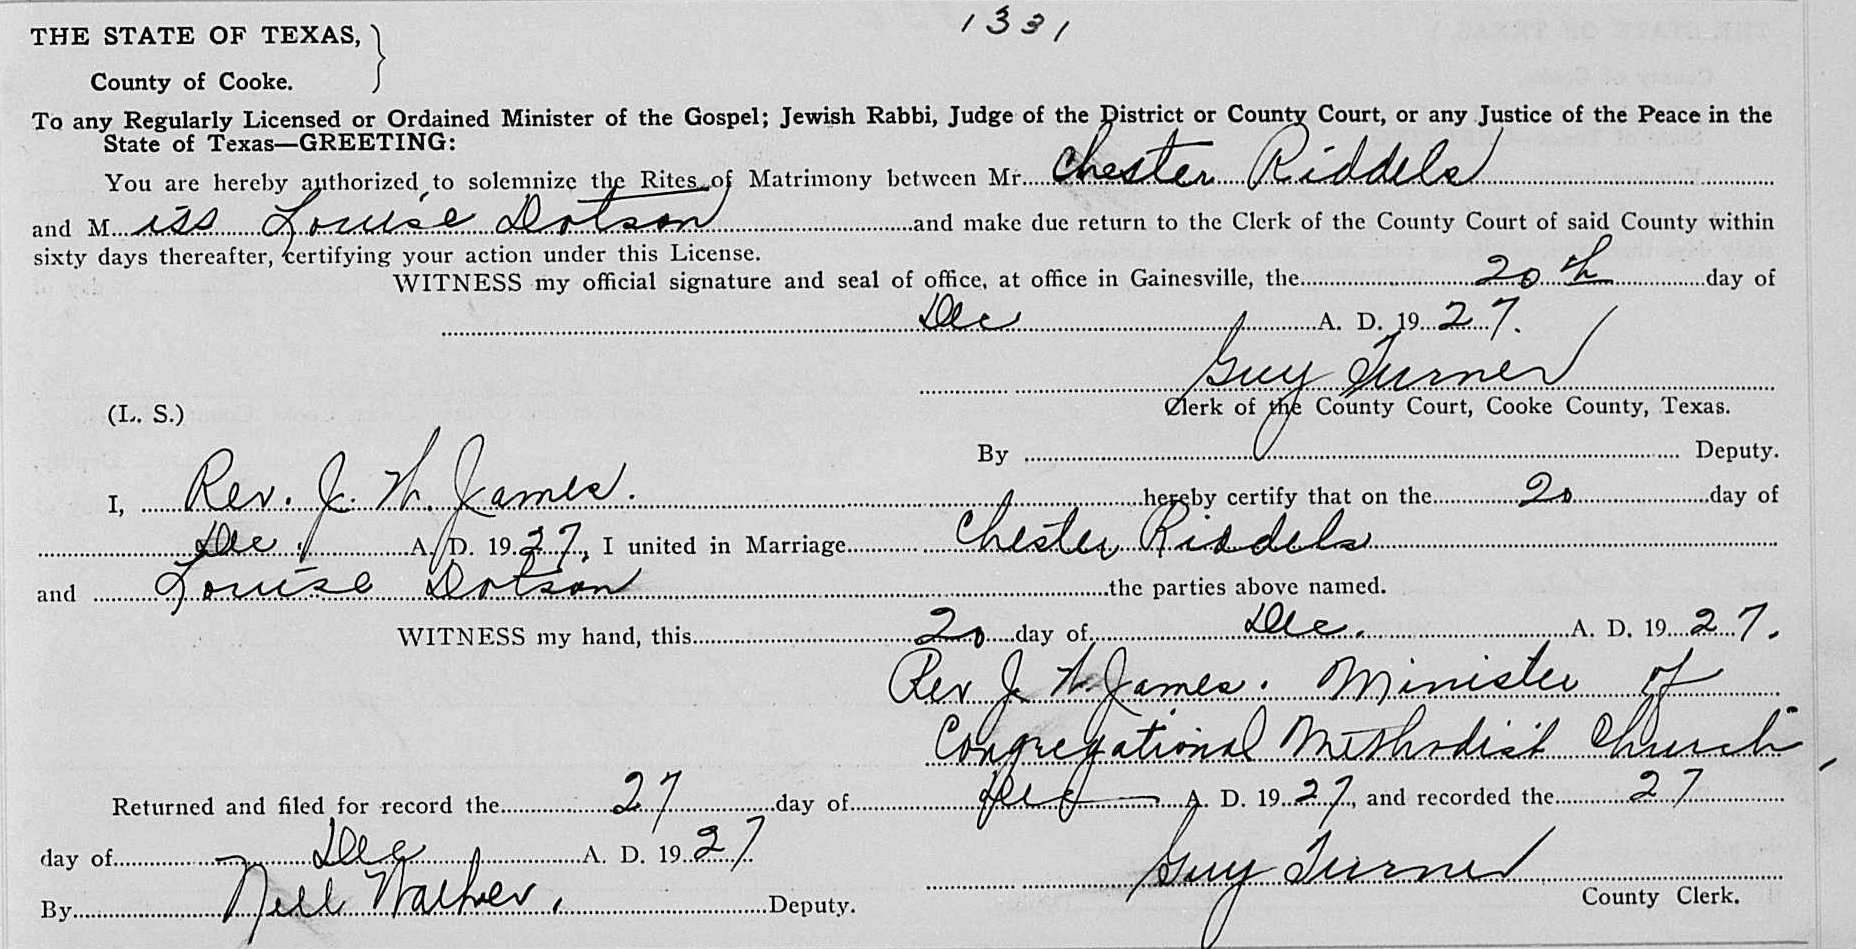 1331
THE STATE OF TEXAS,
County of Cooke.
To any Regularly Licensed or Ordained Minister of the Gospel; Jewish Rabbi, Judge of the District or County Court, or any Justice of the Peace in the
State of Texas—GREETING:
You are hereby authorized to solemnize the Rites of Matrimony between Mr. Chester Riddels
and Miss Louise Dotson and make due return to the Clerk of the County Court of said County within
sixty days thereafter, certifying your action under this License.
WITNESS my official signature and seal of office, at office in Gainesville, the 20th day of
Dec A. D. 1927.
Guy Turner
(L. S.) Clerk of the County Court, Cooke County, Texas.
By Deputy.
I, Rev. J. W. James. hereby certify that on the 20 day of
Dec. A. D. 1927, I united in Marriage Chester Riddels
and Louise Dotson the parties above named.
WITNESS my hand, this 20 day of Dec. A. D. 1927.
Rev J. W. James. Minister of
Congregational Methodist Church,
Returned and filed for record the 27 day of Dec A. D. 1927, and recorded the 27
day of Dec A. D. 1927
Guy Turner
By Nell Walker, Deputy. County Clerk.